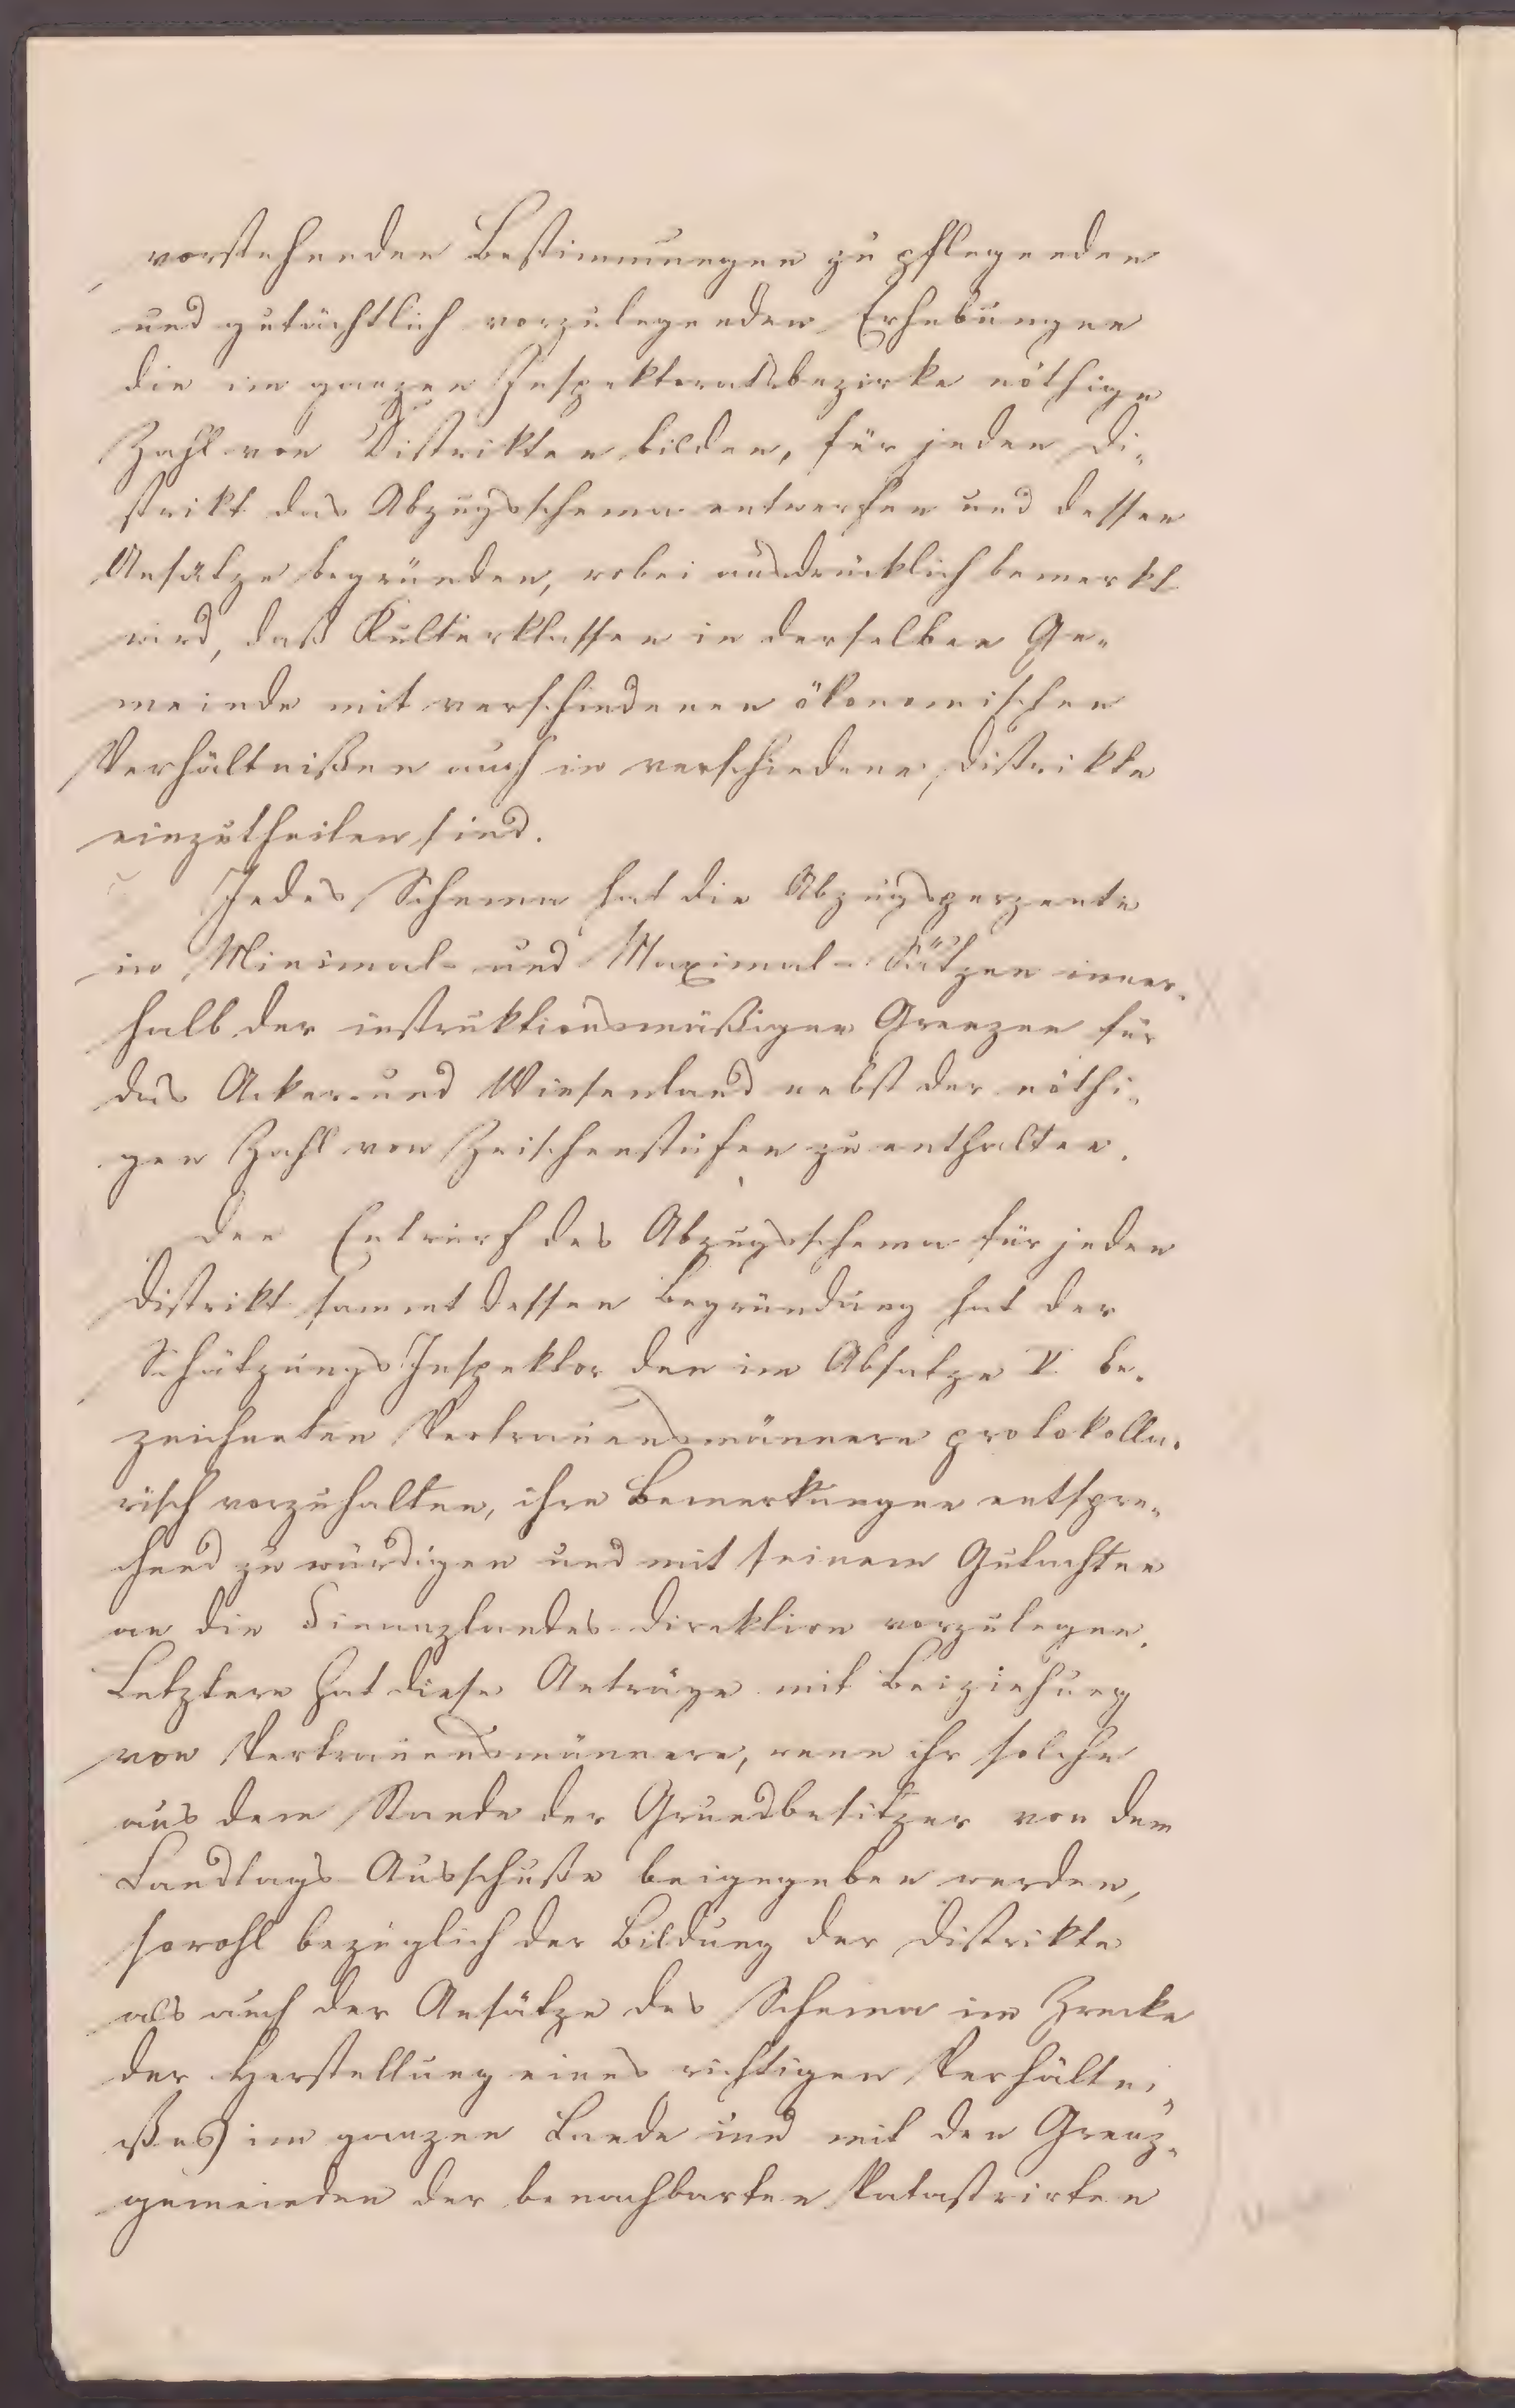 vorstehenden Bestimmungen zu pflegenden
und gutächtlich vorzulegenden Erhebungen
die im ganzen Inspektoratsbezirke nöthige
Zahl von Distrikten bilden, für jeden Di-
strikt das Abzugsschema entwerfen und dessen
Ansätze begründen, wobei ausdrücklich bemerkt
wird, daß Kulturklassen in derselben Ge-
meinde mit verschiedenen ökonomischen
Verhältnißen auch in verschiedene Distrikte
einzutheilen sind.
Jedes Schema hat die Abzugsperzente
in Minimal- und Maximal-Sätzen inner-
halb der instruktionsmäßigen Grenzen für
das Acker- und Wiesenland nebst der nöthi-
gen Zahl von Zwischenstufen zu enthalten.
Den Entwurf des Abzugsschema für jeden
Distrikt sammt dessen Begründung hat der
Schätzungs Inspektor den im Absatze V. be-
zeichneten Vertrauensmännern protokolla-
risch vorzuhalten, ihre Bemerkungen entspre-
chend zu würdigen und mit seinem Gutachten
an die Finanzlandes-Direktion vorzulegen.
Letztere hat diese Anträge mit Beiziehung
von Vertrauensmännern, wenn ihr solche
aus dem Stande der Grundbesitzer von dem
Landtags-Ausschuße beigegeben werden,
sowohl bezüglich der Bildung der Distrikte
als auch der Ansätze des Schema im Zwecke
der Herstellung eines richtigen Verhältni-
ßes im ganzen Lande und mit den Grenz-
gemeinden der benachbarten Katastrirten